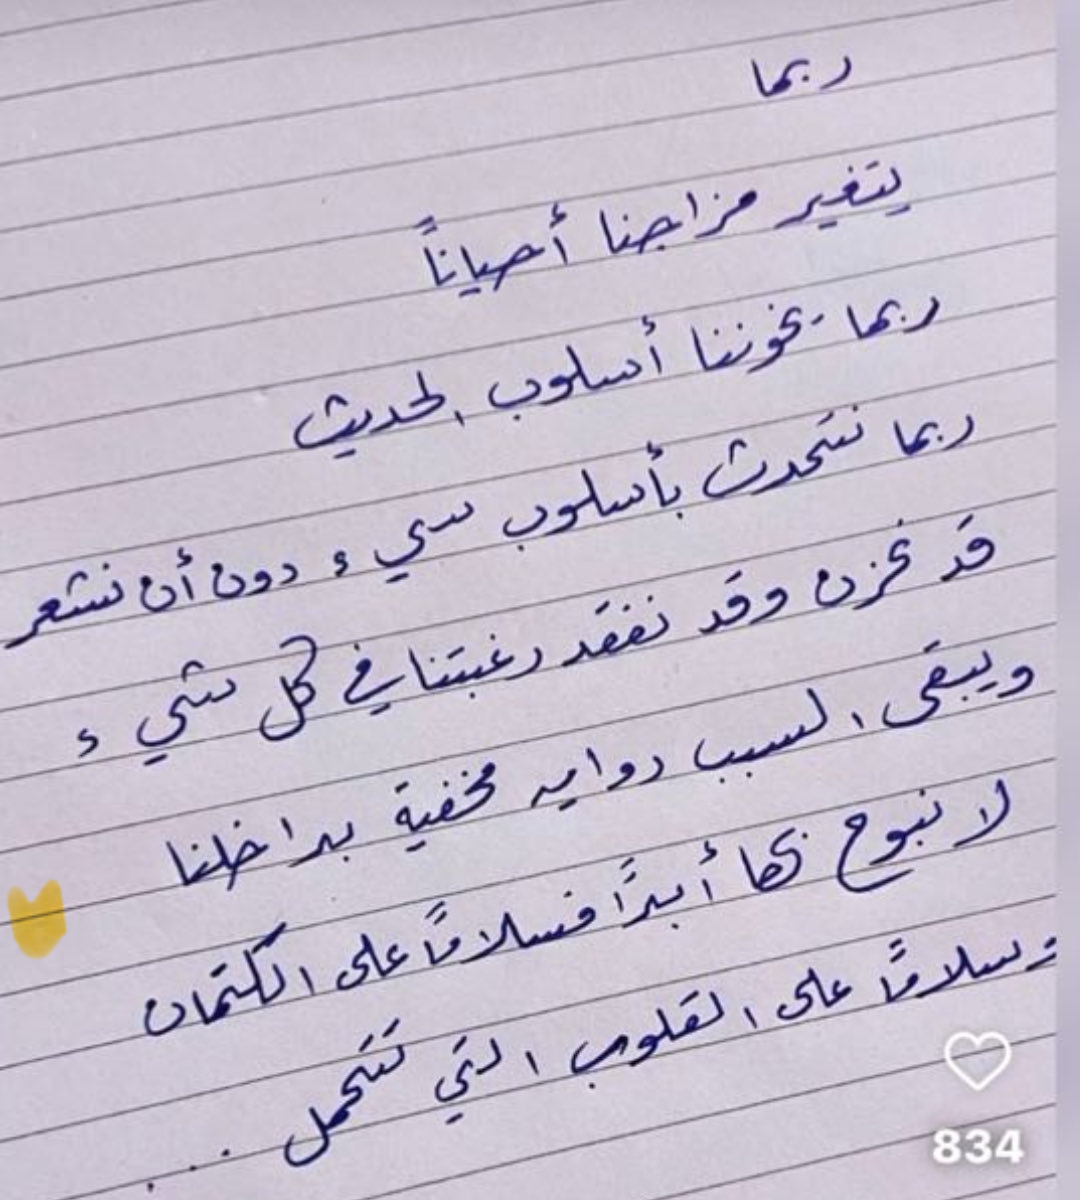 ربما
يتغير مزاجنا أحياناً
ربما يخوننا أسلوب الحديث
ربما نتحدث بأسلوب سيء دون أن نشعر
قد نحزن وقد نفقد رغبتنا في كل شيء
ويبقى السبب روايه مخفية بداخلنا
لا نبوح بها أبدًا فسلامًا على الكتمان
وسلامًا على القلوب التي تتحمل ...
834